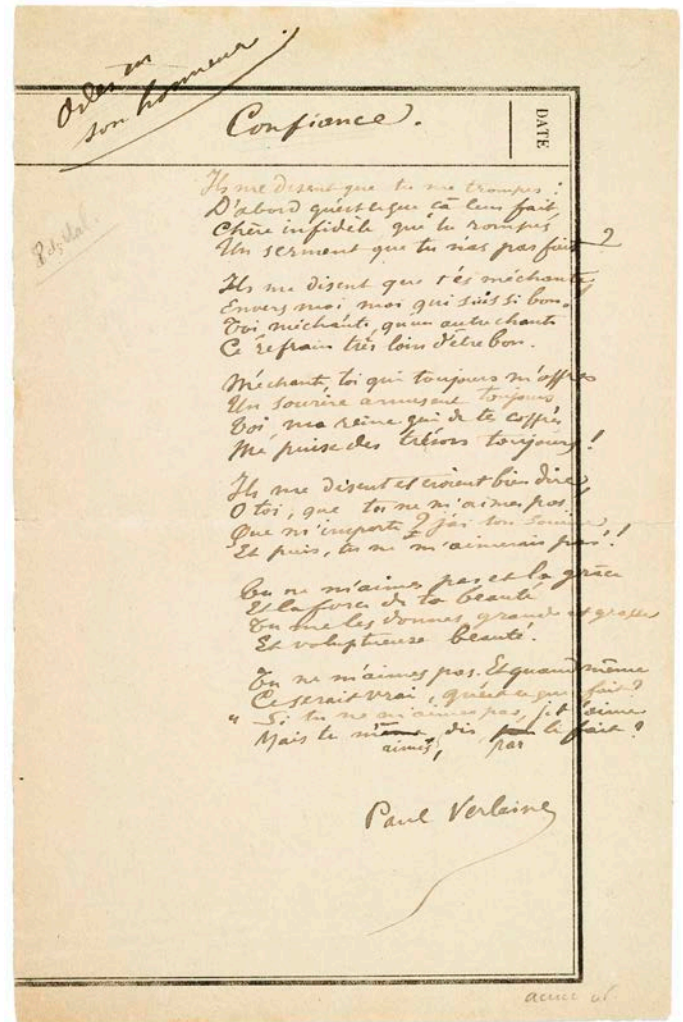 Odes en
son honneur.
Confiance.
DATE
Ils me disent que tu me trompes :
D'abord qu'est-ce que ça leur fait,
Chère infidèle que tu rompes
Un serment que tu n'as pas fait ?
Ils me disent que t'es méchante
Envers moi moi qui suis si bon.
Toi méchante, qu'un autre chante
Ce refrain très loin d'être bon.
Méchante, toi qui toujours m'offres
Un sourire amusant toujours
Toi ma reine qui de tes coffres
Me puises des trésors toujours !
Ils me disent et croient bien dire,
O toi, que tu ne m'aimes pas
Que m'importe ? j'ai ton sourire
Et puis, tu ne m'aimerais pas !!
Tu ne m'aimes pas et la grâce
Et la force de ta beauté
Tu me les donnes, grande et grasse
Et voluptueuse beauté.
Tu ne m'aimes pas. Et quand même
Ce serait vrai, qu'est-ce que fait ?
" Si tu ne m'aimes pas, je t'aime
Mais tu dis le fait ?
aimes, par
Paul Verlaine